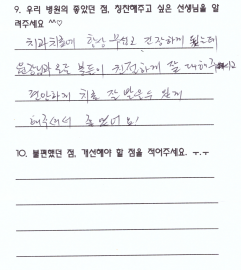 9. 우리 병원의 좋았던 점, 칭찬해주고 싶은 선생님을 알
려주세요 ^^♡
치과치료에 항상 무섭고 긴장하게 되는데
원장님과 모든 분들이 친절하게 잘 대해주시고
편안하게 치료 잘 받을수 있게
해주셔서 좋았어요!
10. 불편했던 점, 개선해야 할 점을 적어주세요. ㅜ.ㅜ